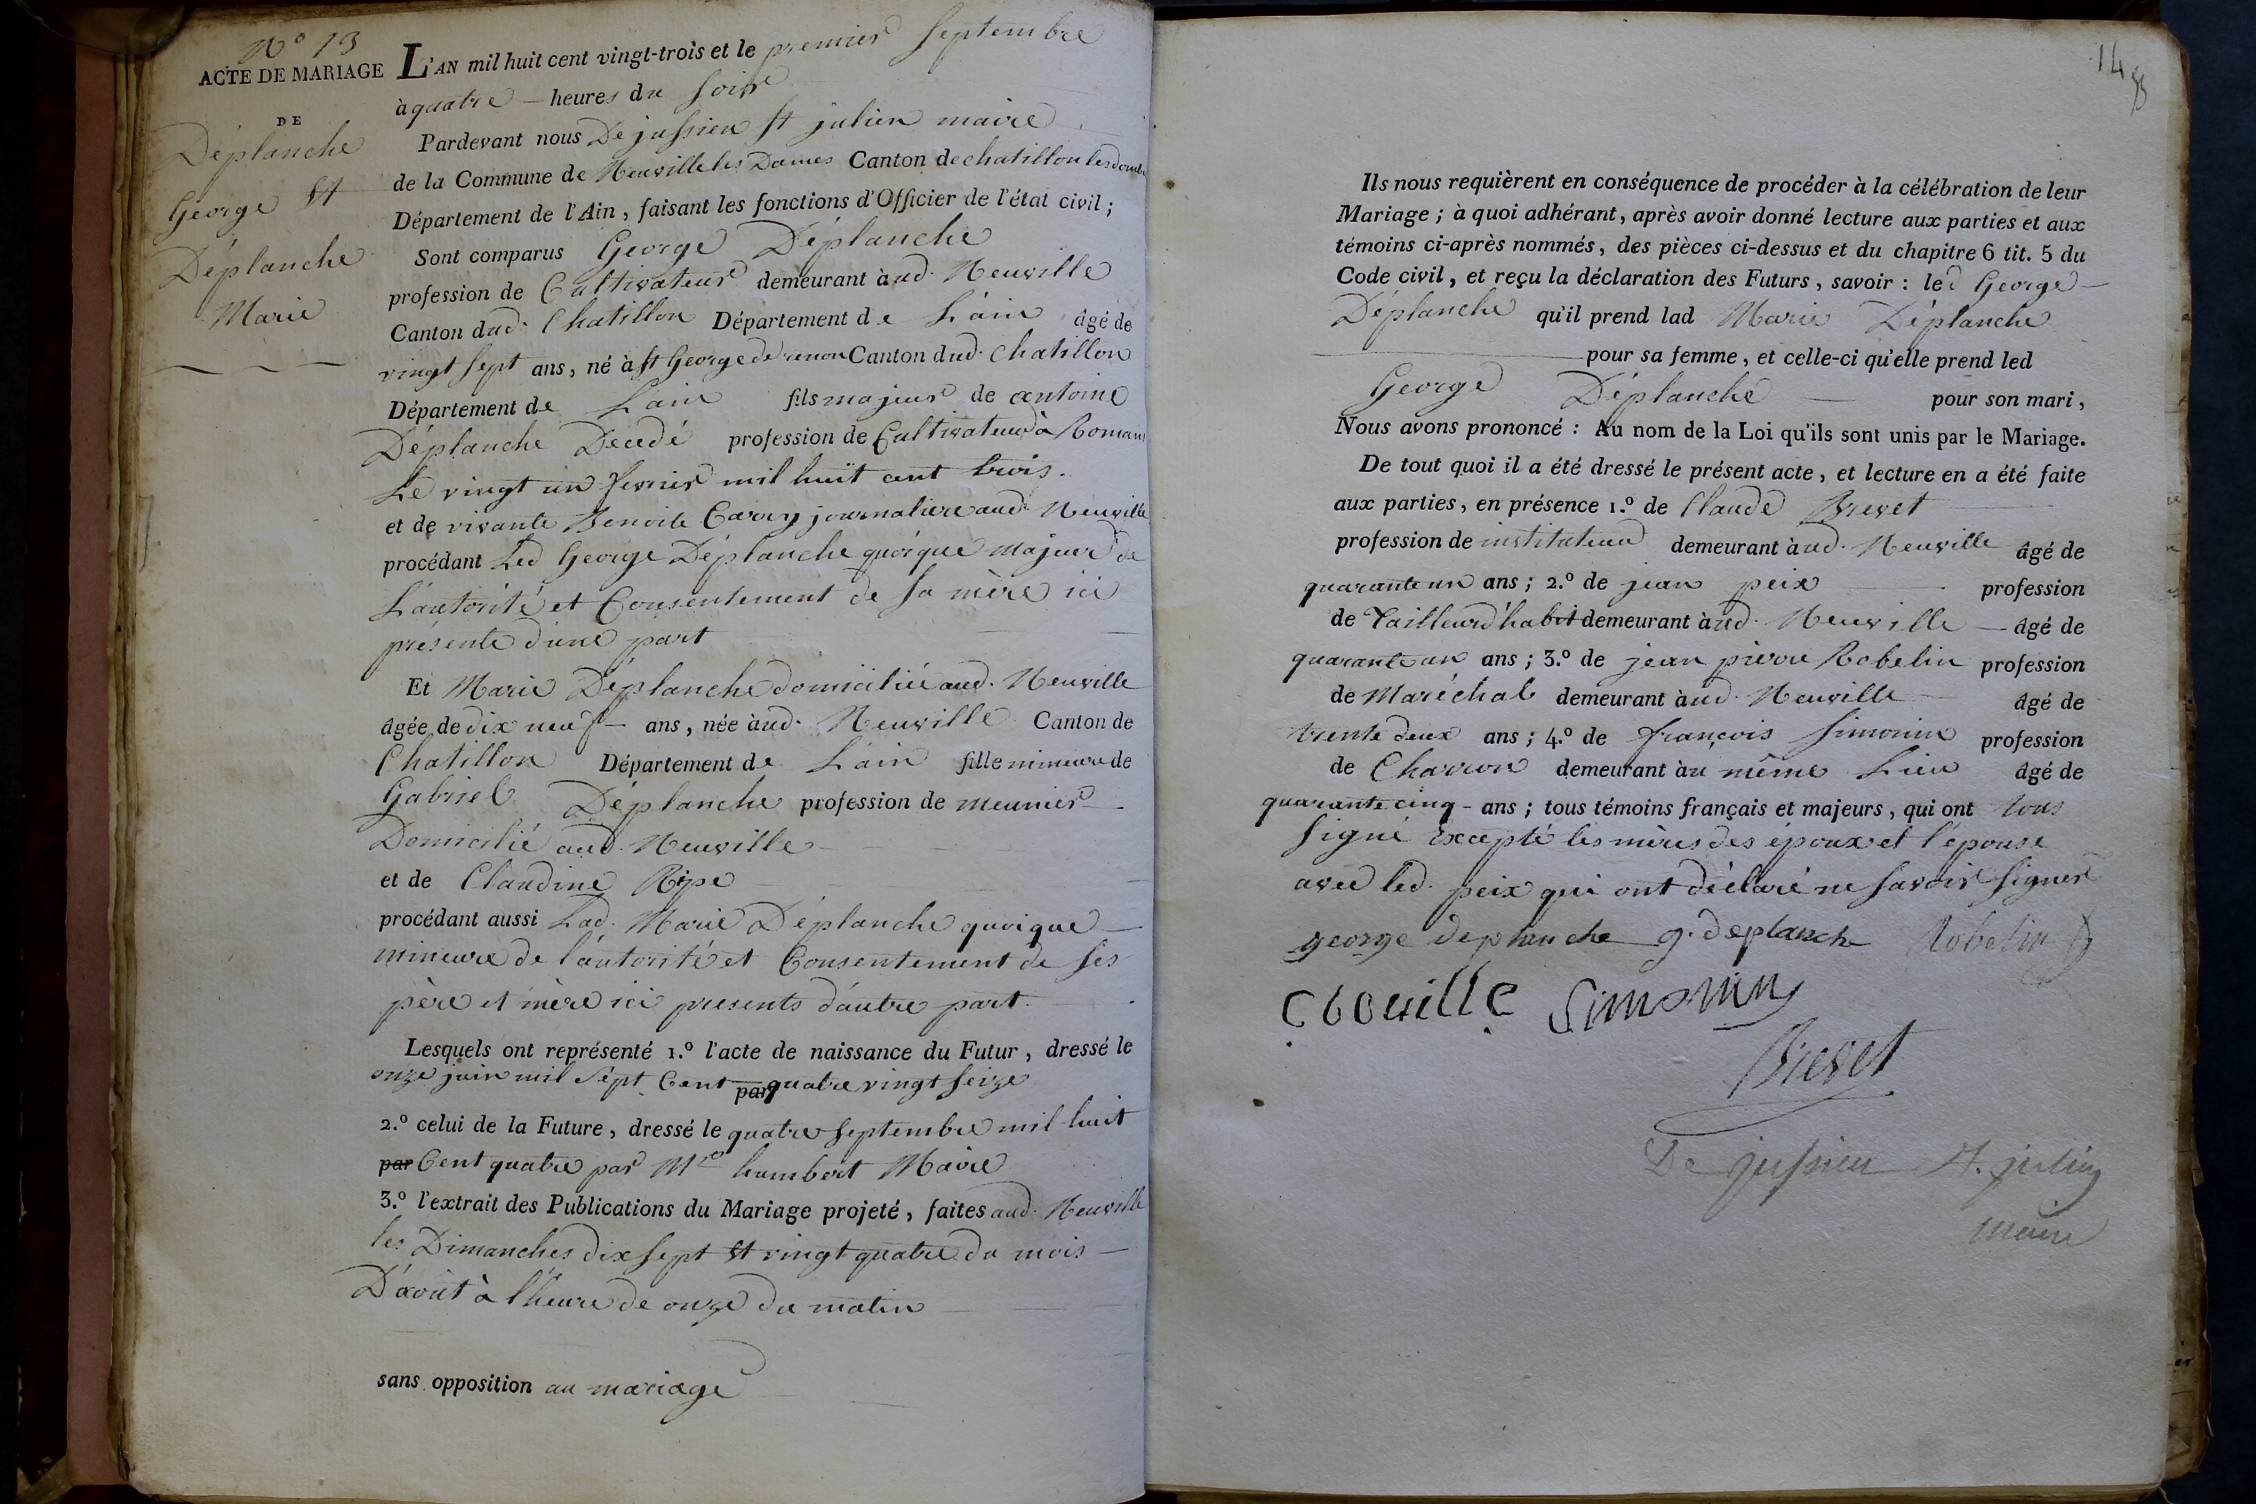 N° 13
ACTE DE MARIAGE
DE
Déplanche
George Et
Déplanche
Marie
L'AN mil huit cent vingt-trois et le premier Septembre
à quatre heures du Soir
Pardevant nous De jussieu St julien maire
de la Commune de Neuville les Dames Canton de chatillon les dombe
Département de l'Ain, faisant les fonctions d'Officier de l'état civil;
Sont comparus George Déplanche
profession de Cultivateur demeurant à ud. Neuville
Canton dud. Chatillon Département de L'ain âgé de
vingt sept ans, né à St George de renon Canton dud. Chatillon
Département de L'ain fils majeur de antoine
Déplanche Decedé profession de Cultivateur à Romans
Le vingt un fevrier mil huit cent trois.
et de vivante Benoite Carry journaliere aud. Neuville
procédant Led George Déplanche quoique majeur de
L'autorité et Consentement de Sa mère ici
présente d'une part
Et Marie Déplanche domiciliée aud. Neuville
âgée de dix neuf ans, née à ud. Neuville Canton de
Chatillon Département de L'ain fille mineure de
Gabriel Déplanche profession de meunier
Domicilié aud. Neuville
et de Claudine Rype
procédant aussi Lad. Marie Déplanche quoique
mineure de l'autorité et Consentement de Ses
père et mère ici presents d'autre part.
Lesquels ont représenté 1.º l'acte de naissance du Futur, dressé le
onze juin mil Sept Cent par quatre vingt Seize
2.º celui de la Future, dressé le quatre Septembre mil huit
par Cent quatre par Mre humbert Maire
3.º l'extrait des Publications du Mariage projeté, faites aud. Neuville
les Dimanches dix Sept Et vingt quatre du mois
D'aout à l'heure de onze du matin
sans opposition au mariage
14
Ils nous requièrent en conséquence de procéder à la célébration de leur
Mariage; à quoi adhérant, après avoir donné lecture aux parties et aux
témoins ci-après nommés, des pièces ci-dessus et du chapitre 6 tit. 5 du
Code civil, et reçu la déclaration des Futurs, savoir: led George
Déplanche qu'il prend lad Marie Déplanche
pour sa femme, et celle-ci qu'elle prend led
George Déplanche pour son mari,
Nous avons prononcé: Au nom de la Loi qu'ils sont unis par le Mariage.
De tout quoi il a été dressé le présent acte, et lecture en a été faite
aux parties, en présence 1.º de Claude Brevet
profession de instituteur demeurant à ud. Neuville âgé de
quarante un ans; 2.º de jean peix profession
de Tailleur d'habit demeurant à ud. Neuville âgé de
quarante un ans; 3.º de jean pierre Robelin profession
de Maréchal demeurant à ud. Neuville âgé de
trente deux ans; 4.º de françois Simonin profession
de Charron demeurant à u même Lieu âgé de
quarante cinq ans; tous témoins français et majeurs, qui ont tous
Signé Excepté les mères des époux et l'épouse
avec led. peix qui ont déclaré ne Savoir Signer
george deplanche g. deplanche Robelin
Simonin
Brevet
De jussieu St. julien
maire